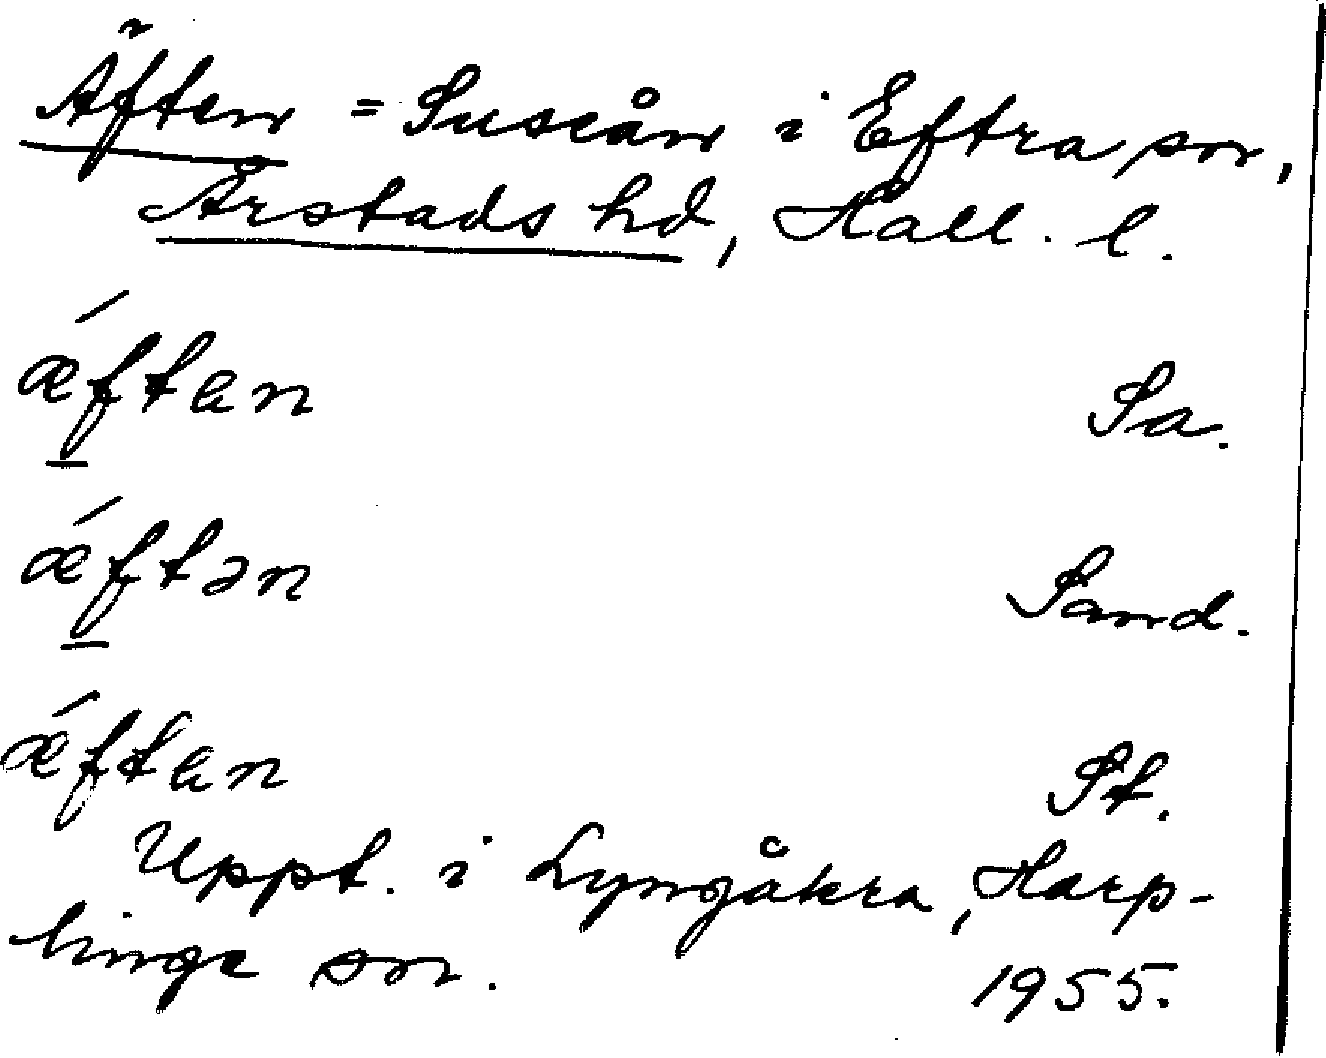 Äften = Suseån i Eftra sn,
Årstads hd, Hall. l.
ǽften Sa.
ǽftən Sand.
ǽften St.
Uppt. i Lyngåkra, Harp-
linge sn. 1955.